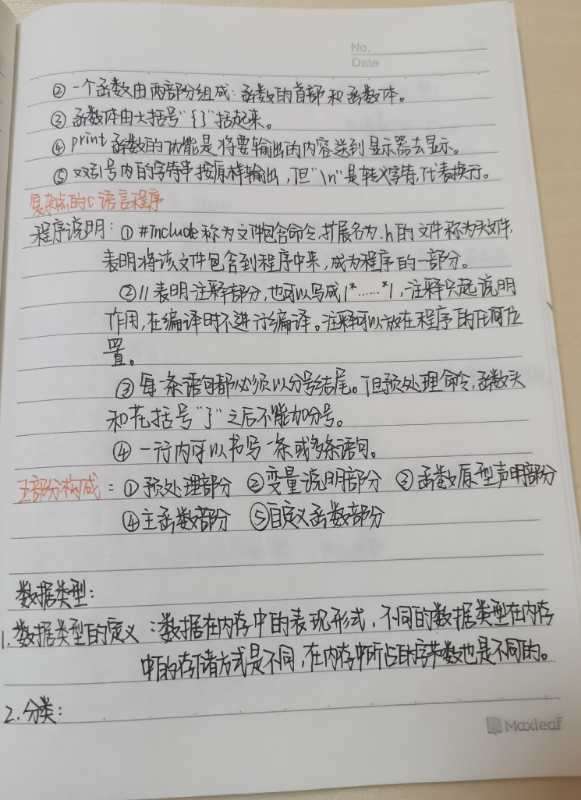 No.
Date
② 一个函数由两部分组成：函数的首部和函数体。
③ 函数体由大括号“{ }”括起来。
④ print 函数的功能是将要输出的内容送到显示器去显示。
⑤ 双引号内的字符串按原样输出，但“\n”是转义字符，代表换行。
复杂点的C语言程序
程序说明：① #Include 称为文件包含命令，扩展名为.h的文件称为头文件，
表明将该文件包含到程序中来，成为程序的一部分。
② // 表明注释部分，也可以写成 /*……*/，注释只起说明
作用，在编译时不进行编译。注释可以放在程序的任何位
置。
③ 每一条语句都必须以分号结尾。但预处理命令，函数头
和花括号“}”之后不能加分号。
④ 一行内可以书写一条或多条语句。
五部分构成：① 预处理部分 ② 变量说明部分 ③ 函数原型声明部分
④ 主函数部分 ⑤ 自定义函数部分
数据类型：
1. 数据类型的定义：数据在内存中的表现形式，不同的数据类型在内存
中的存储方式是不同，在内存中所占的字节数也是不同的。
2. 分类：
Maxleaf